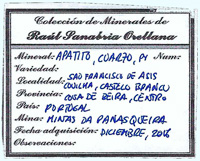 Colección de Minerales de
Raúl Sanabria Orellana
Mineral: APATITO, CUARZO, PI Num:
Variedad:
Localidad: SAO FRANCISCO DE ASIS
COVILHA, CASTELO BRANCO
COVA DE BEIRA, CENTRO
País: PORTUGAL
Mina: MINAS DA PANASQUEIRA.
Fecha adquisición: DICIEMBRE, 2016
Observaciones: